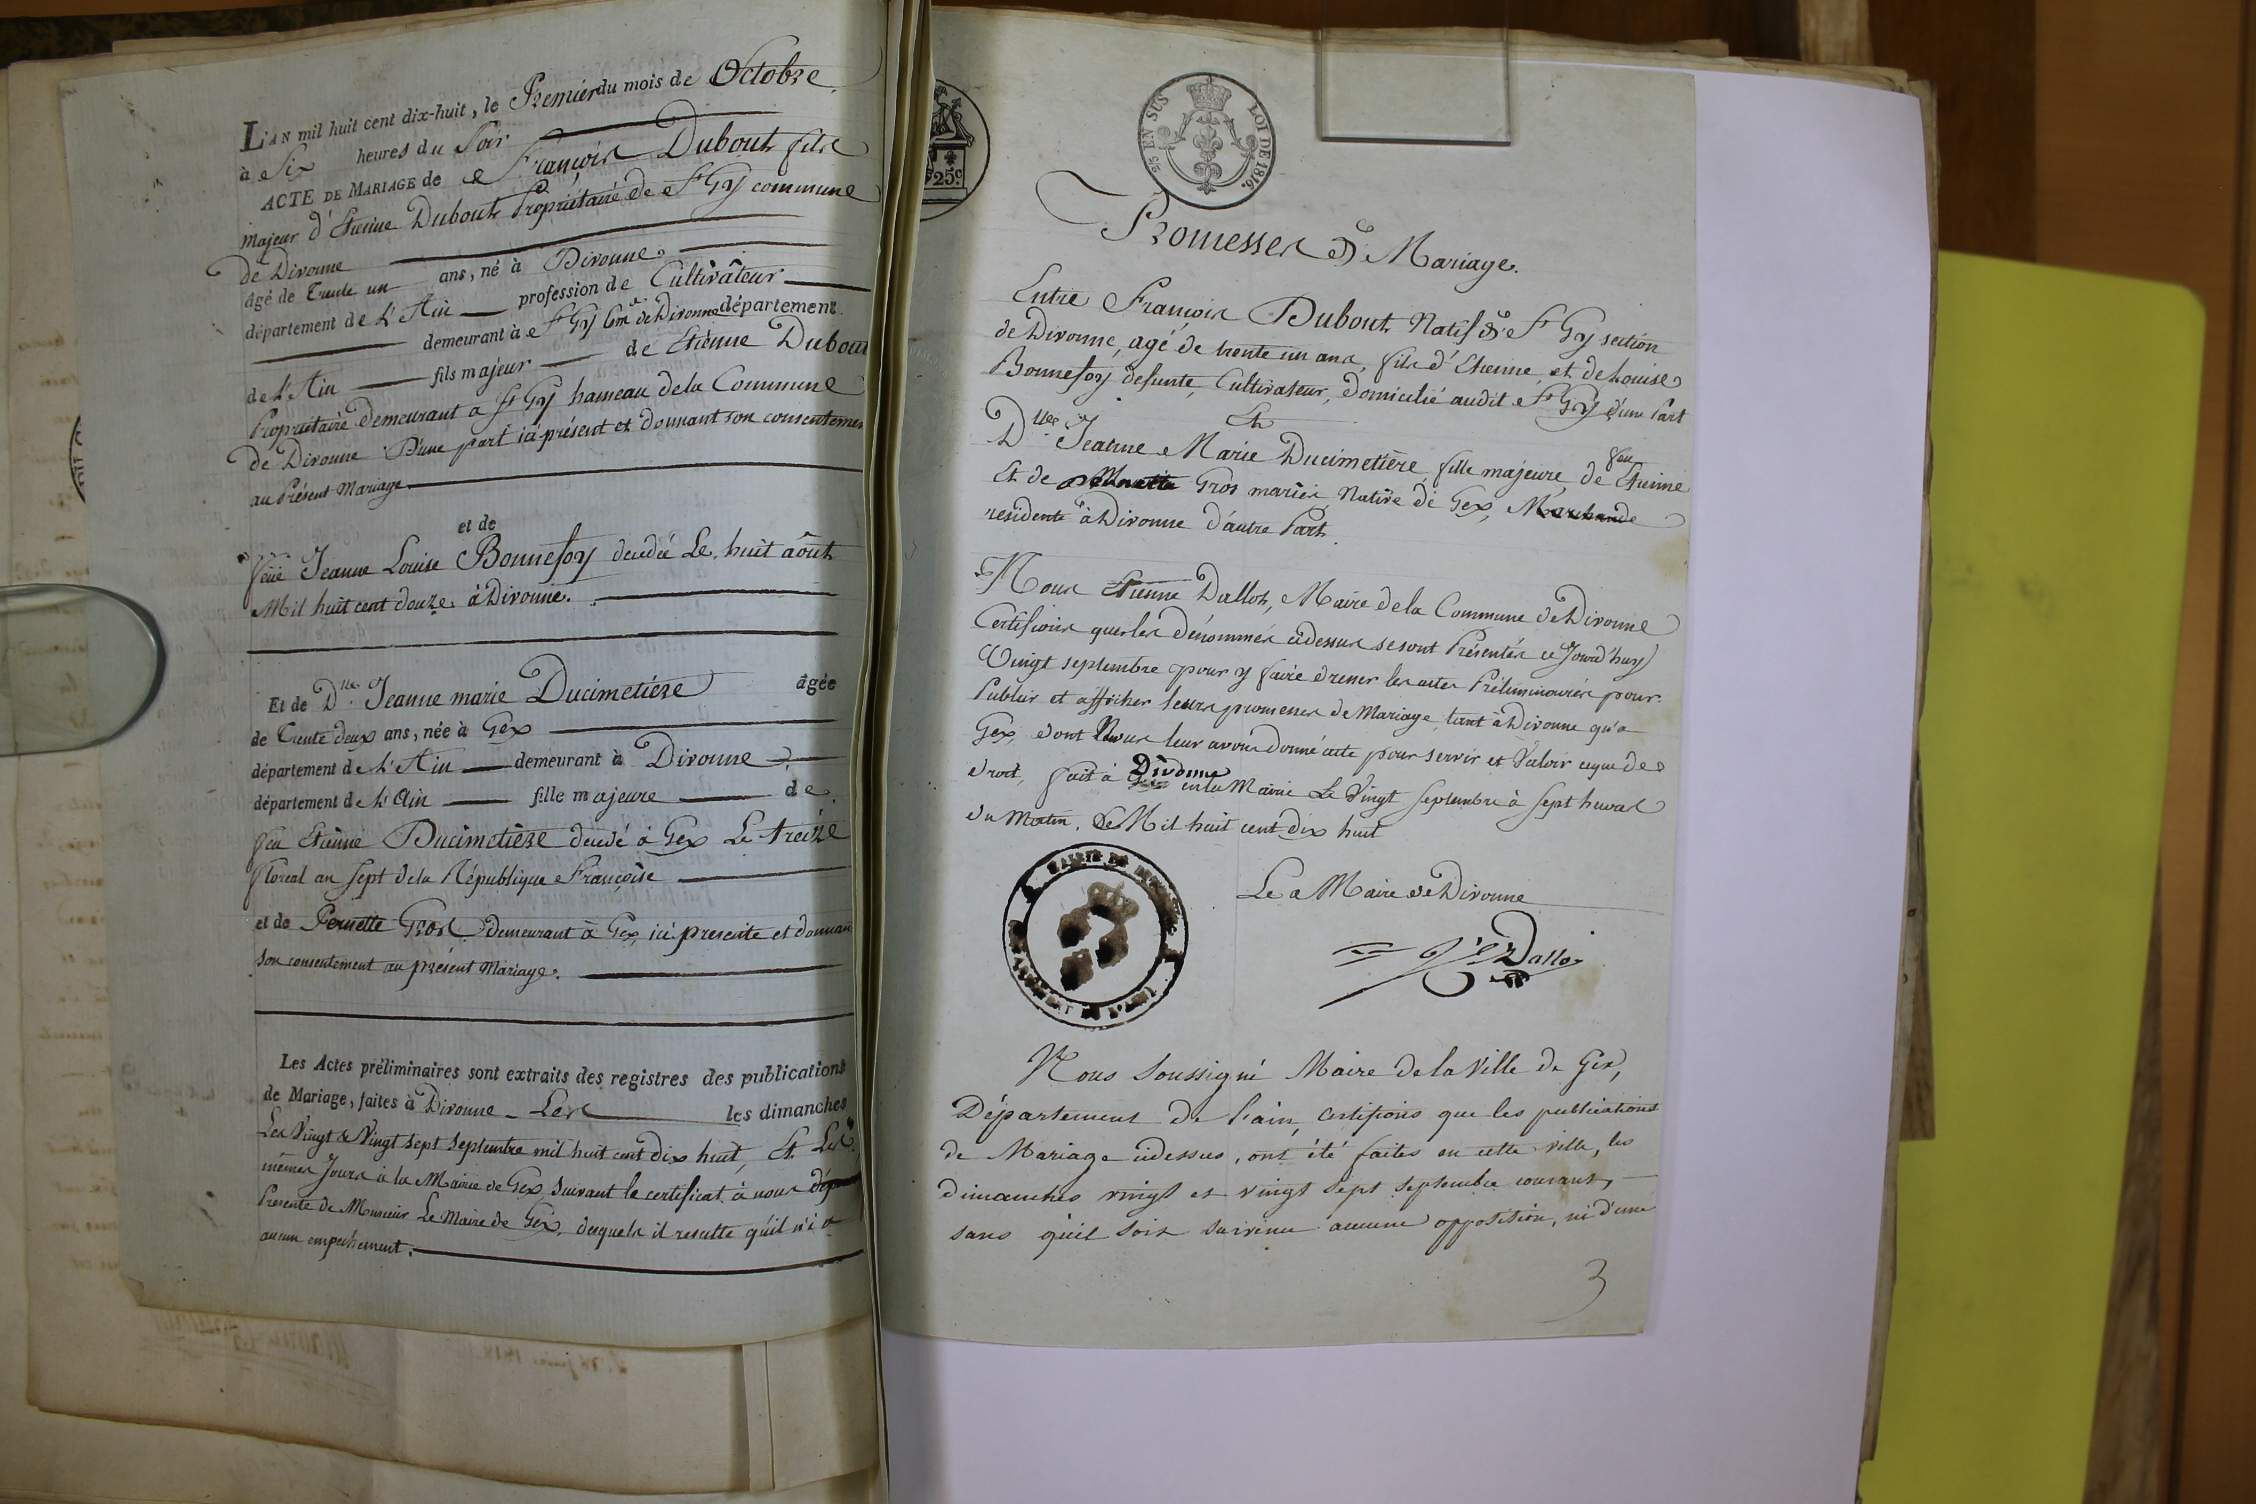 L'AN mil huit cent dix-huit, le Premier du mois de Octobre
à Six heures du Soir
ACTE DE MARIAGE de François Dubout fils
majeur d'Etienne Dubout Propriétaire de St Gy commune
de Divonne
agé de Trente un ans, né à Divonne
département de L'Ain profession de Cultivâteur
demeurant à St Gy Com.e de Divonne département
de L'Ain fils majeur de Etiénne Dubout
Propriétaire demeurant a St Gy hameau de la Commune
de Divonne D'une part ici présent et donnant son consentemen
au Présent Mariage
et de
feüe Jeanne Louise Bonnefoy decedée Le huit aôut
Mil huit cent douze à Divonne.
Et de Dlle Jeanne marie Ducimetiére âgée
de Trente deux ans, née à Gex
département de L'Ain demeurant à Divonne
département de L'Ain fille majeure de
feu Etiênne Ducimetière decedé à Gex Le treize
floreal an Sept de la République Françoise
et de Pernette Gros demeurant à Gex ici presente et donnan
son consentement au présent Mariage.
Les Actes préliminaires sont extraits des registres des publications
de Mariage, faites à Divonne Les les dimanches
Les Vingt & Vingt sept Septembre mil huit cent dix huit, Et Les
mêmes Jours à la Mairie de Gex, suivant le certificat à nous
Presente de Monsieur Le Maire de Gex, desquels il resulte qu'il n'i a
aucun empechement.
25c
25 EN SUS LOI DE 1816.
Promesses de Mariage.
Entre François Dubout Natif de St Gy section
de Divonne, agé de trente un ans, fils d'Etienne, et de Louise
Bonnefoy defunte, Cultivateur, domicilié audit St Gy d'une Part
Et
Dlle Jeanne Marie Ducimetière fille majeure, de feu Etienne
Et de Gros mariés, Native de Gex, Marchande
residente à Divonne d'autre Part.
Nous Etienne Dallos, Maire de la Commune de Divonne
Certifions que les dénommés cidessus se sont Présentés ce Jourd'huy
Vingt septembre pour y faire dresser les actes Préliminaires pour
Publier et afficher leurs promesses de Mariage, tant à Divonne qu'a
Gex, dont Nous leur avons donné acte pour servir et Valoir ce que de
droit, fait à Divonne en la Mairie Le Vingt Septembre à Sept heures
du Matin. De Mil huit cent dix huit
MAIRIE DE DIVONNE
DÉPARTEMENT DE L'AIN
Le Maire de Divonne
Dallos
Nous Soussigné Maire de la Ville de Gex,
Département de l'ain, certifions que les publications
de Mariage cidessus, ont été faites en cette ville, les
dimanches vingt et vingt sept septembre courant,
sans qu'il soit survenu aucune opposition, ni d'une
3